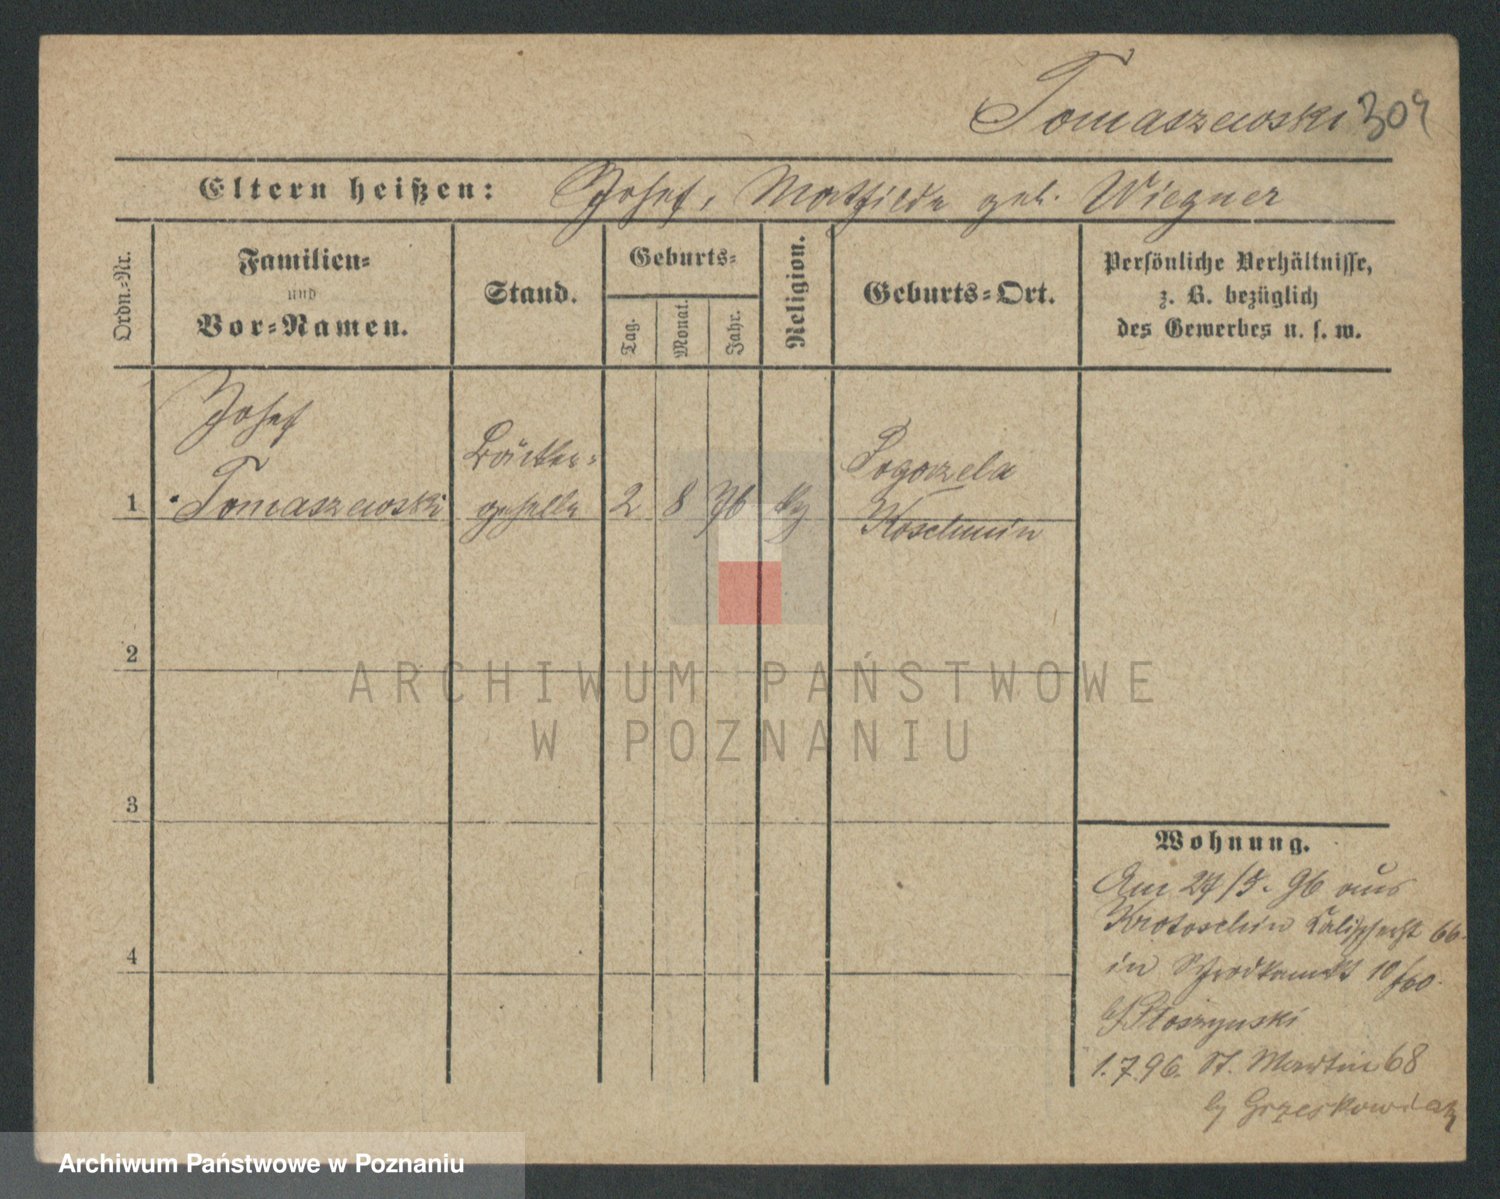 Tomaszewski 309
Eltern heißen: Josef, Mathilde geb. Wiegner
Ordn.-Nr.
Familien-
und
Vor-Namen.
Stand.
Geburts-
Tag.
Monat.
Jahr.
Religion.
Geburts-Ort.
Persönliche Verhältnisse,
z. B. bezüglich
des Gewerbes u. s. w.
Josef
1 Tomaszewski
Bäcker-
geselle
2 8 76
Pogorzela
Koschmin
2
3
4
Wohnung.
Am 27/5. 96 aus
Krotoschin 66
in 10
1.7.96. St. Martin 68
b/ Grzeskowiak
ARCHIWUM PAŃSTWOWE
W POZNANIU
Archiwum Państwowe w Poznaniu